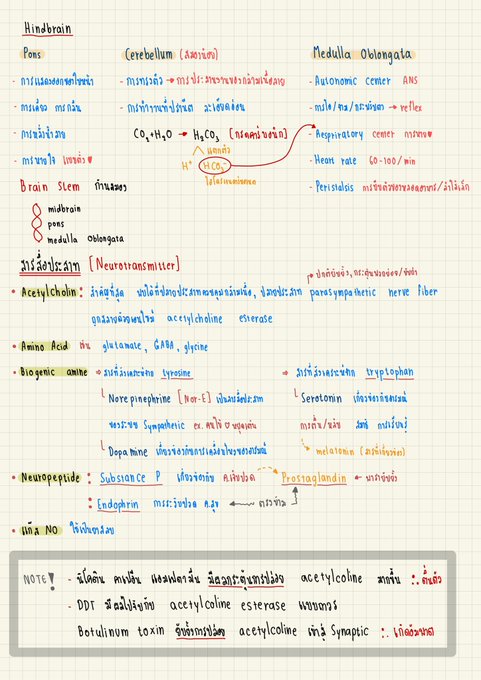 Hindbrain
Pons
- การแสดงออกของใบหน้า
- การเคี้ยว การกลืน
- การหลั่งน้ำลาย
- การหายใจ
Cerebellum (สมองน้อย)
- การทรงตัว → การประสานงานของกล้ามเนื้อลาย
- การทำงานที่ประณีต ละเอียดอ่อน
CO2+H2O → H2CO3 [กรดคาร์บอนิก]
แตกตัว
H+ HCO3-
Medulla Oblongata
- Autonomic center ANS
- การไอ/จาม/กระพริบตา → reflex
- Respiratory center การหายใจ
- Heart rate 60-100/min
- Peristalsis การบีบตัวของหลอดอาหาร/ลำไส้เล็ก
Brain Stem ก้านสมอง
midbrain
pons
medulla oblongata
สารสื่อประสาท [Neurotransmitter]
• Acetylcholin : สำคัญที่สุด พบได้ที่ปลายประสาทควบคุมกล้ามเนื้อ, ปลายประสาท parasympathetic nerve fiber
ถูกสลายด้วยเอนไซม์ acetylcholine esterase
• Amino Acid เช่น glutamate, GABA, glycine
• Biogenic amine ⇒ สารที่สังเคราะห์จาก tyrosine
Norepinephrine [Nor-E] เป็นสารสื่อประสาท
ของระบบ Sympathetic ex. คนไข้ ♡ หยุดเต้น
Dopamine เกี่ยวข้องกับการเคลื่อนไหวของอารมณ์
⇒ สารที่สังเคราะห์จาก tryptophan
Serotonin เกี่ยวข้องกับอารมณ์
การตื่น/หลับ สมาธิ การเรียนรู้
melatonin (สารที่เกี่ยวข้อง)
• Neuropeptide : Substance P เกี่ยวข้องกับ ค.เจ็บปวด Prostaglandin ← บาดเจ็บ
: Endophrin การระงับปวด ค.สุข ตรงข้าม
• แก๊ส NO
NOTE! - นิโคติน คาเฟอีน แอมเฟตามีน มีผลกระตุ้นการปล่อย acetylcoline มากขึ้น ∴ตื่นตัว
- DDT มีผลไปจับกับ acetylcoline esterase แบบถาวร
Botulinum toxin ยับยั้งการปล่อย acetylcoline เข้าสู่ Synaptic ∴ เกิดอัมพาต